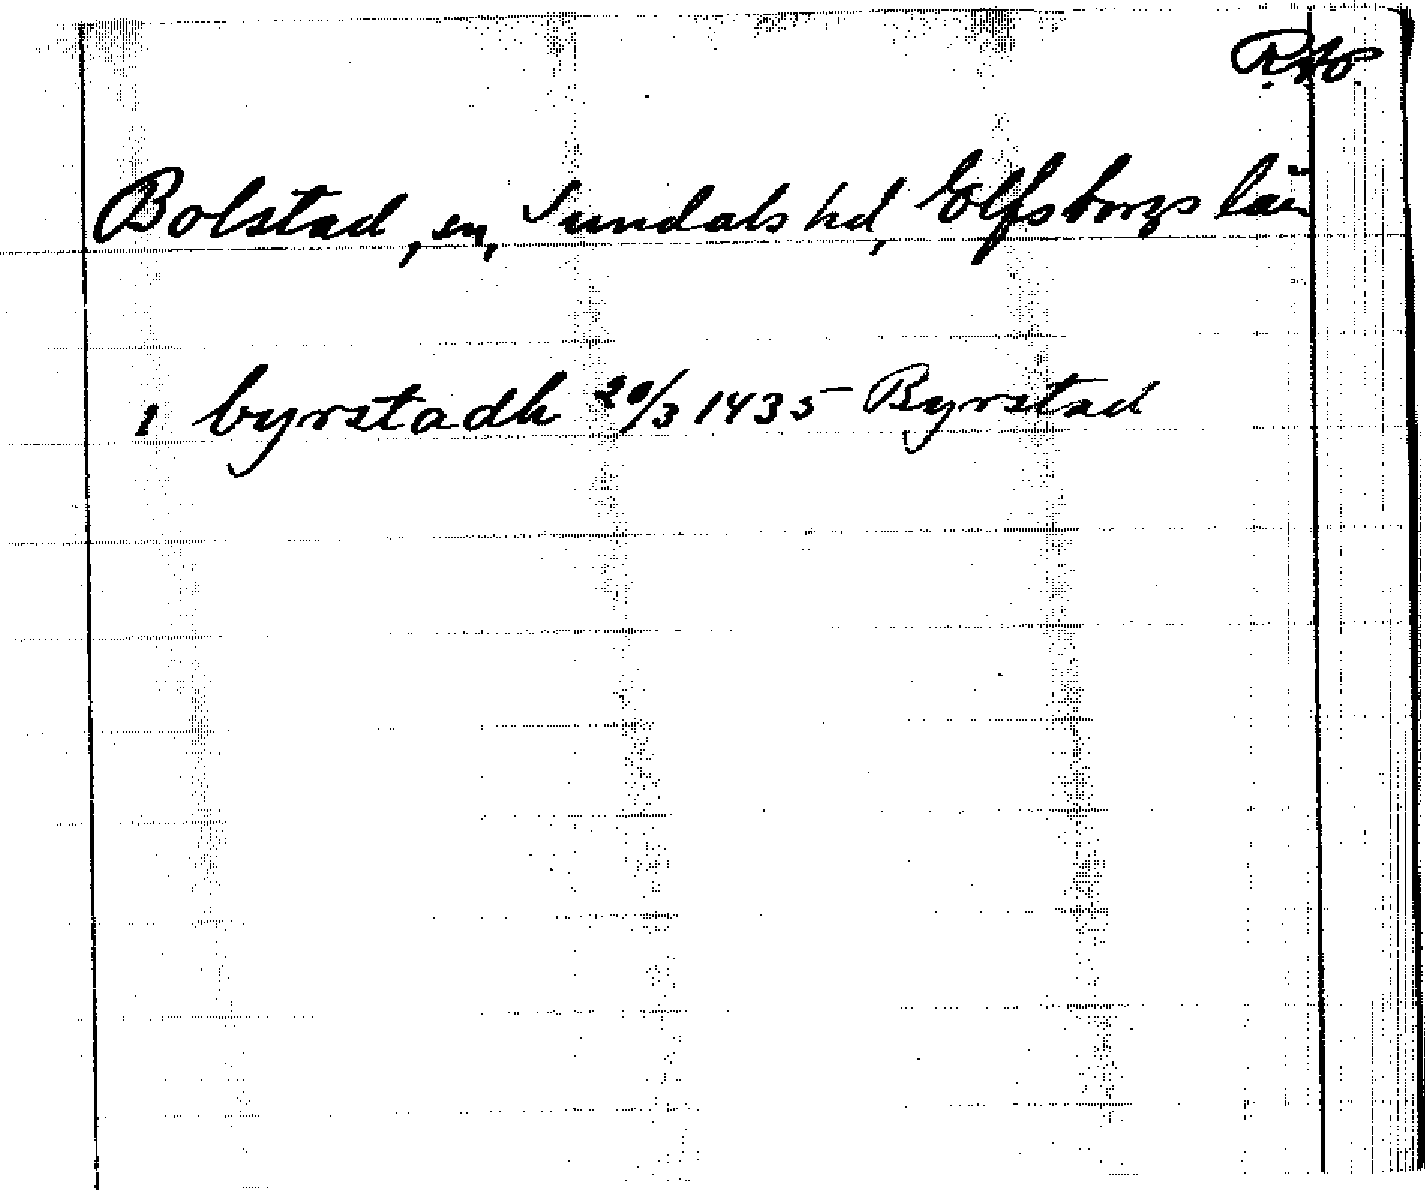 Bolstad, sn, Sundals hd, Elfsborgs län
i byrstadh 20/3 1435 Byrstad